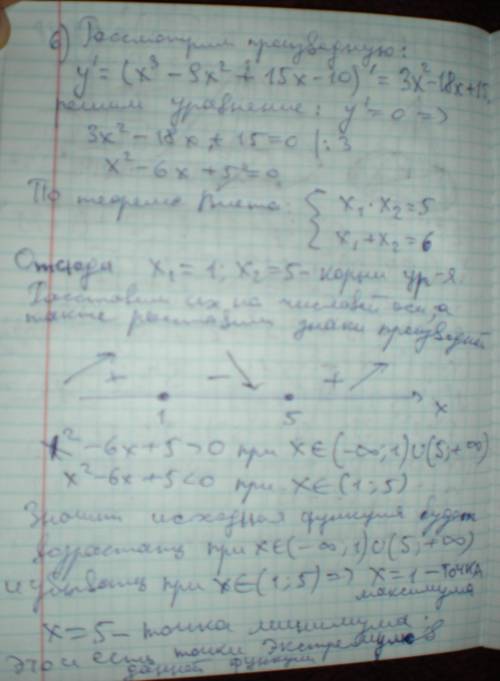 6) Рассмотрим производную:
y' = (x³ - 9x² + 15x - 10)' = 3x² - 18x + 15,
решим уравнение: y' = 0 =>
3x² - 18x + 15 = 0 |:3
x² - 6x + 5 = 0
По теореме Виета { x₁ · x₂ = 5
x₁ + x₂ = 6
Отсюда x₁ = 1; x₂ = 5 - корни ур-я.
Расставим их на числовой оси, а
также расставим знаки производной
+ - +
1 5 x
x² - 6x + 5 > 0 при x ∈ (-∞; 1) ∪ (5; +∞)
x² - 6x + 5 < 0 при x ∈ (1; 5)
Значит исходная функция будет
возрастать при x ∈ (-∞; 1) ∪ (5; +∞)
и убывать при x ∈ (1; 5) => x = 1 - точка
максимума
x = 5 - точка минимума.
Это и есть точки экстремумов
данной функции